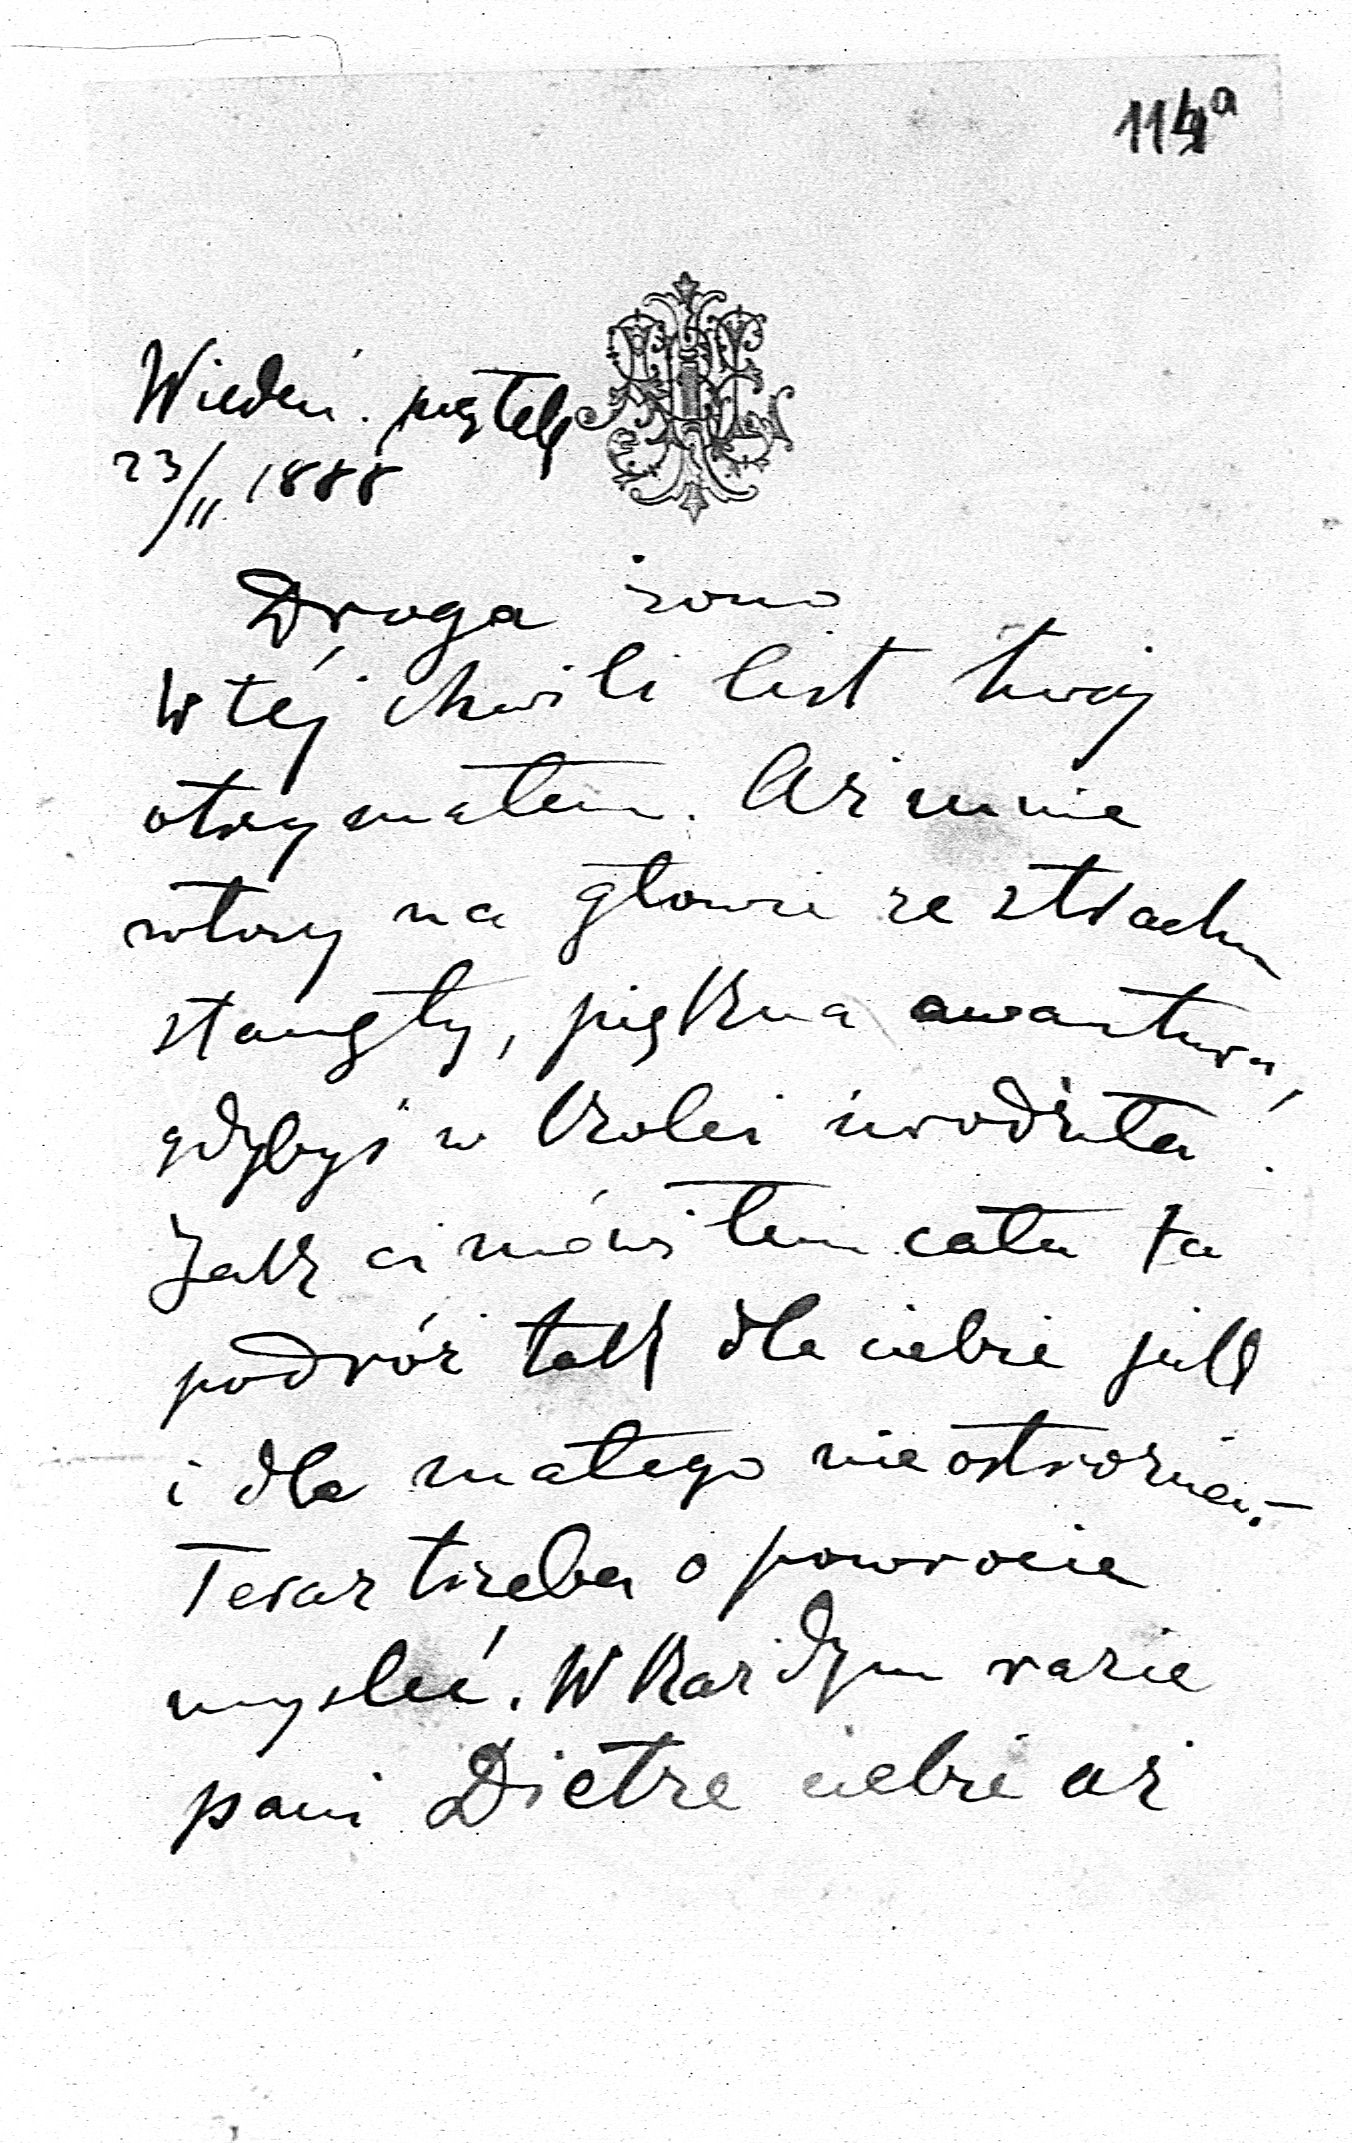 114a
Wiedeń. piątek
23/II 1888
Droga żono
W téj chwili list twój
otrzymałem. Aż mnie
włosy na głowie ze strachu
stanęły, piękna awantura,
gdybyś w kolei urodziła!
Jak ci mówiłem cała ta
podróż tak dla ciebie jak
i dla małego nieostrożna.–
Teraz trzeba o powrocie
mysleć. W każdym razie
pani Dietze ciebie aż